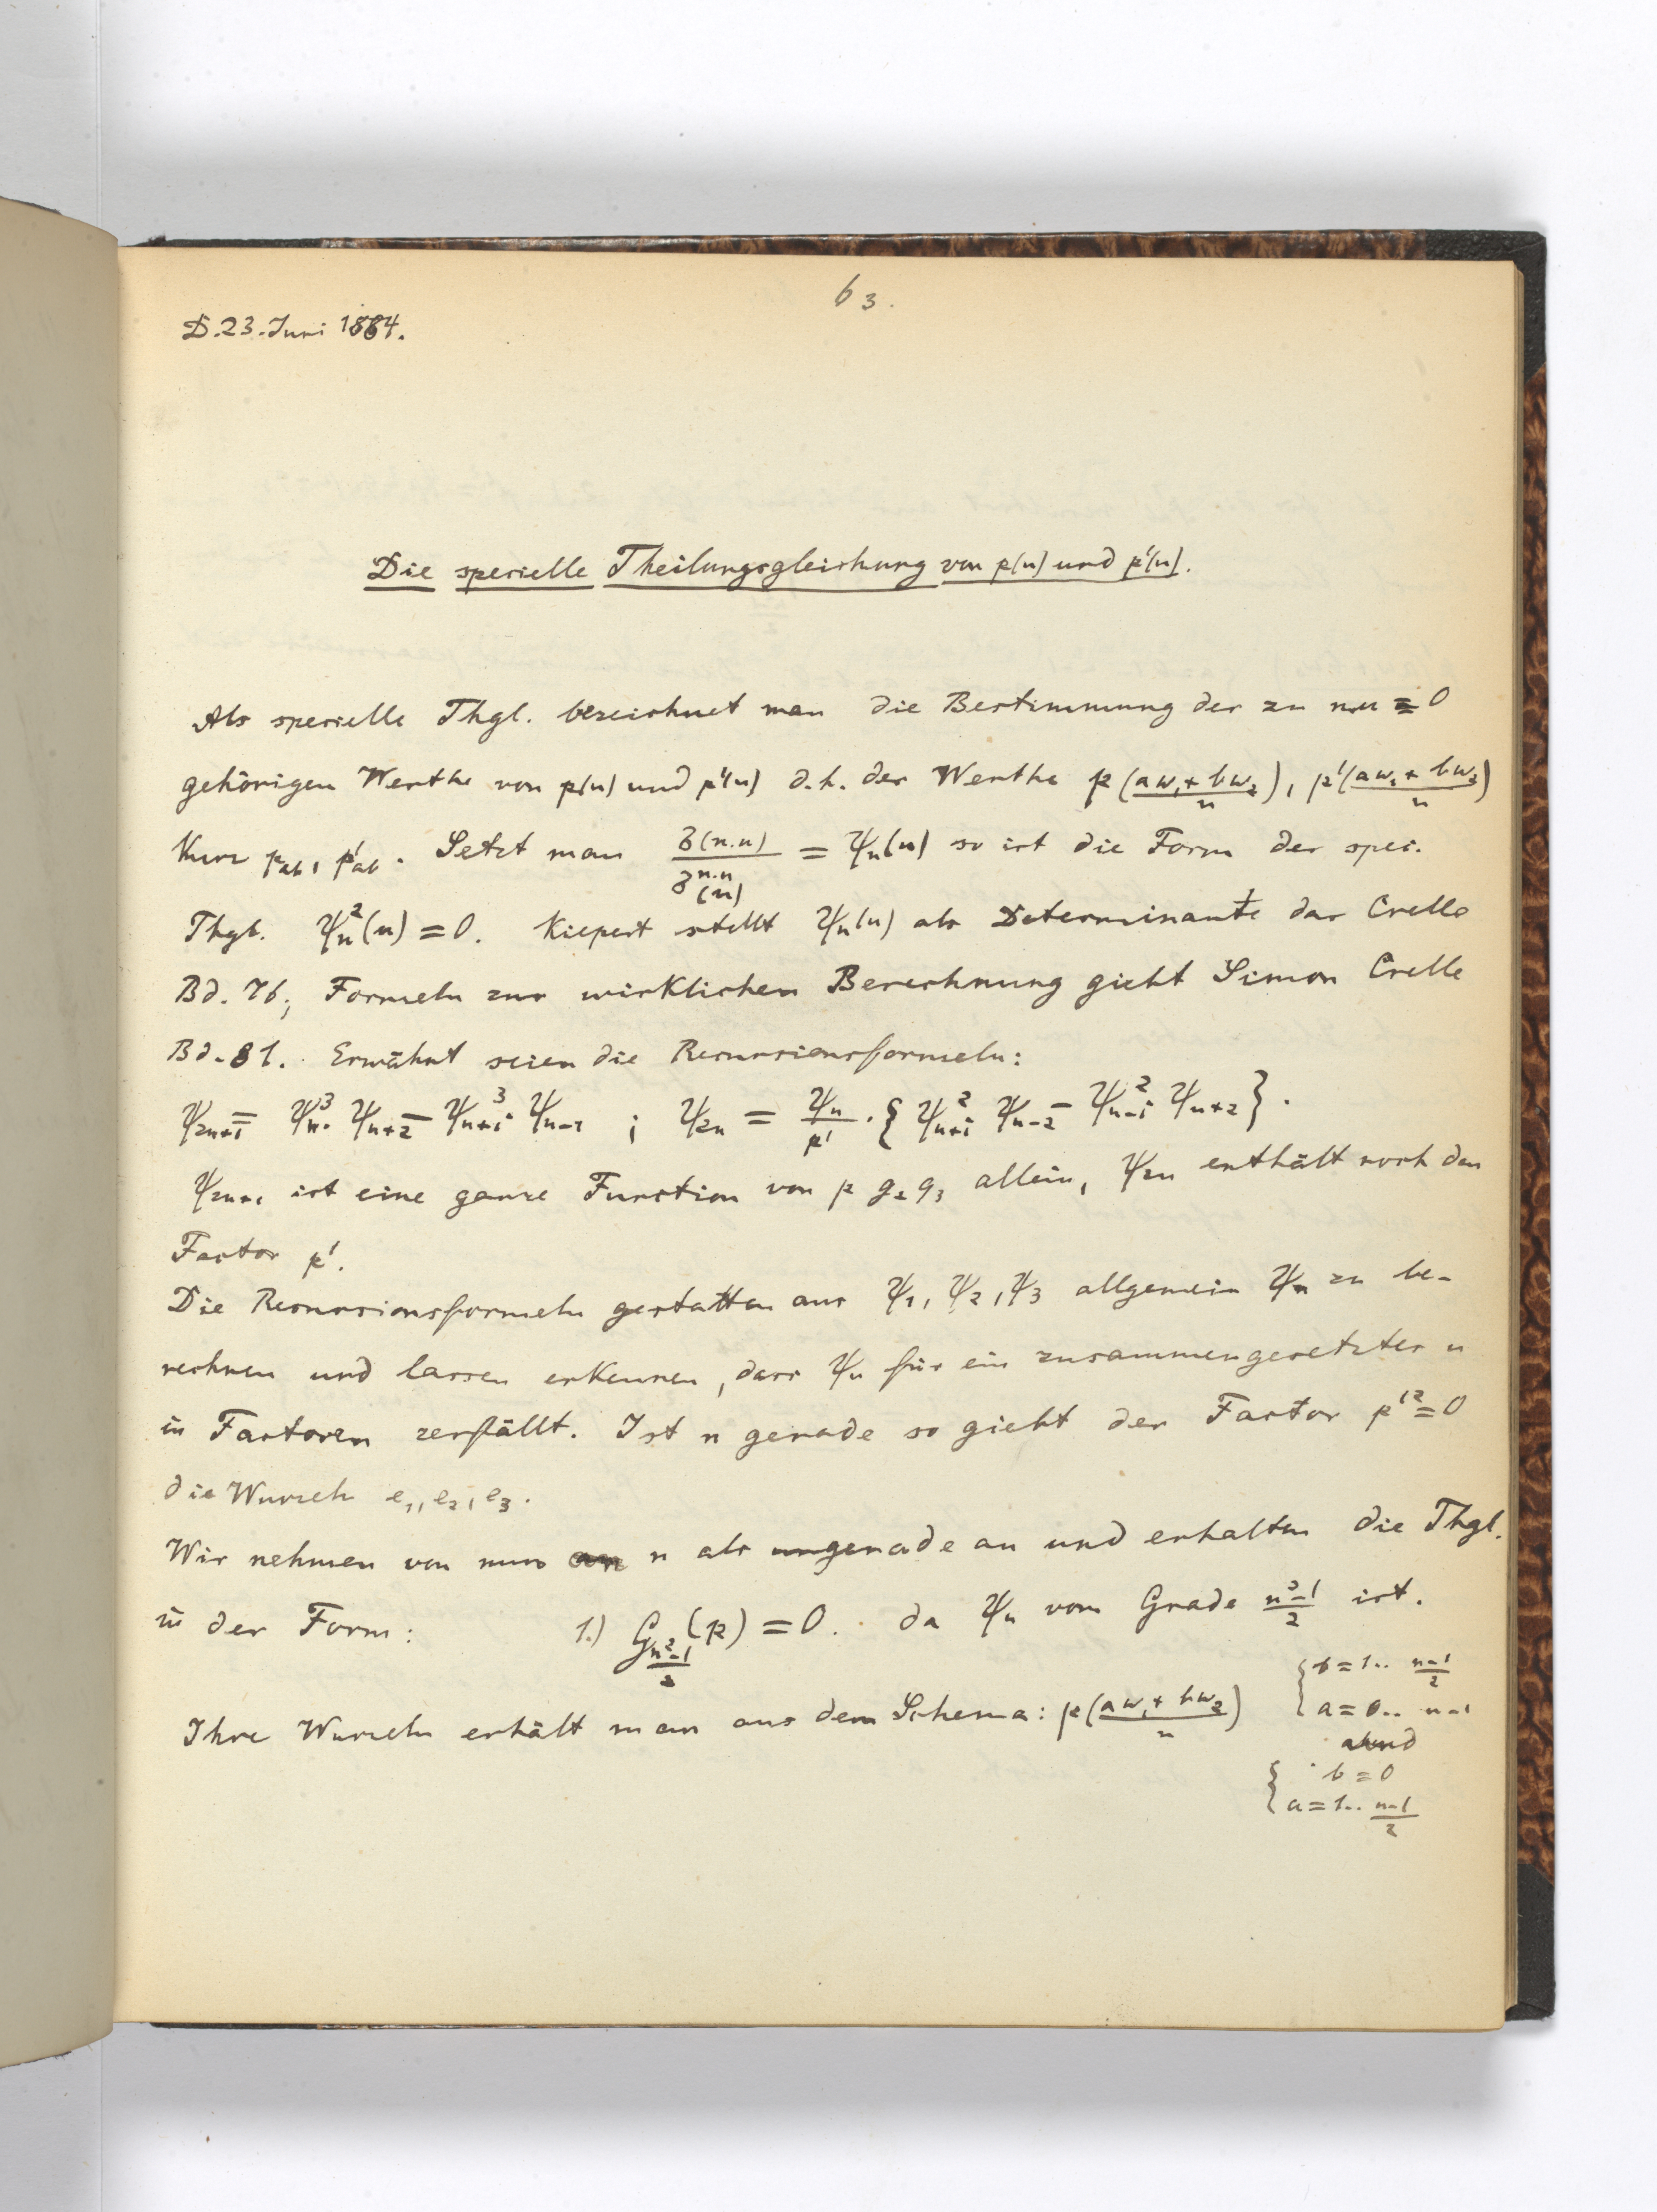 63.
D. 23. Juni 1884.
Die specielle Theilungsgleichung von p(u) und p'(u).
Als specielle Thgl. bezeichnet man die Bestimmung der zu n.u ≡ 0
gehörigen Werthe von p(u) und p'(u) d.h. der Werthe p(aω₁+bω₂/n), p'(aω₁+bω₂/n)
Kurz p_ab, p'_ab. Setzt man σ(n.u)/σ^{n.n}(u) = ψ_n(u) so ist die Form der spec.
Thgl. ψ_n²(u) = 0. Kiepert stellt ψ_n(u) als Determinante dar Crelle
Bd. 76; Formeln zur wirklichen Berechnung giebt Simon Crelle
Bd. 81. Erwähnt seien die Recursionsformeln:
ψ_{2n+1} = ψ_n³. ψ_{n+2} − ψ_{n+1}³ ψ_{n-1} ; ψ_{2n} = ψ_n/p' . { ψ_{n+1}² ψ_{n-2} − ψ_{n-1}² ψ_{n+2} }.
ψ_{2n+1} ist eine ganze Function von p g₂ g₃ allein, ψ_{2n} enthält noch den
Factor p'.
Die Recursionsformeln gestatten aus ψ₁, ψ₂, ψ₃ allgemein ψ_n zu be-
rechnen und lassen erkennen, dass ψ_n für ein zusammengesetztes n
in Factoren zerfällt. Ist n gerade so giebt der Factor p'² = 0
die Wurzeln e₁, e₂, e₃.
Wir nehmen von nun an n als ungerade an und erhalten die Thgl.
in der Form: 1.) G_{n²-1/2}(p) = 0. da ψ_n vom Grade n²-1/2 ist.
Ihre Wurzeln erhält man aus dem Schema: p(aω₁+bω₂/n) { b = 1.. n-1/2
a = 0.. n-1
und
{ b = 0
a = 1.. n-1/2